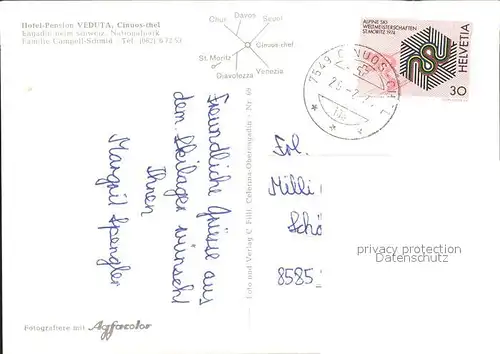 Hotel-Pension VEDUTA, Cinuos-chel
Engadin beim schweiz. Nationalpark
Familie Campell-Schmid Tel. (082) 6 72 53
Davos
Chur
Scuol
Cinuos-chel
St. Moritz
Diavolezza
Venezia
7549 CINUOS-CHEL
ALPINE SKI
WELTMEISTERSCHAFTEN
ST. MORITZ 1974
HELVETIA
30
Freundliche Grüsse aus
dem Skilager wünscht
Ihnen
Margrit Spengler
Foto und Verlag C. Filli, Celerina-Oberengadin - Nr. 69
Frl.
Milli
Schö
8585
privacy protection
Datenschutz
Fotografiere mit Agfacolor